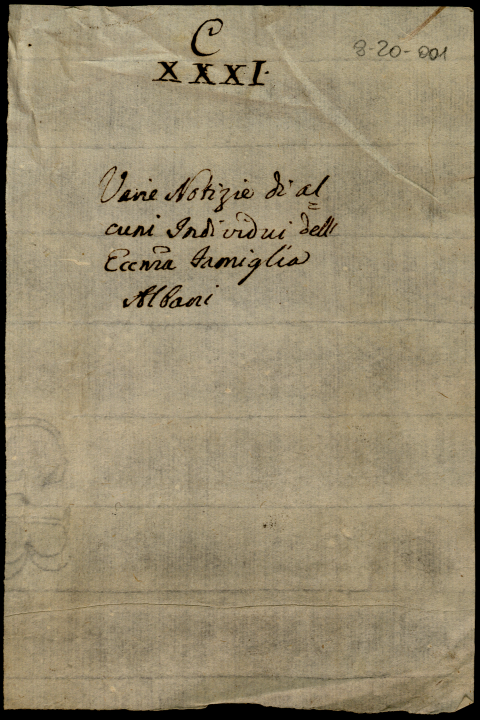 C
8-20-001
XXXI.
Varie Notizie di al=
cuni Individui dell
Eccma famiglia
Albani